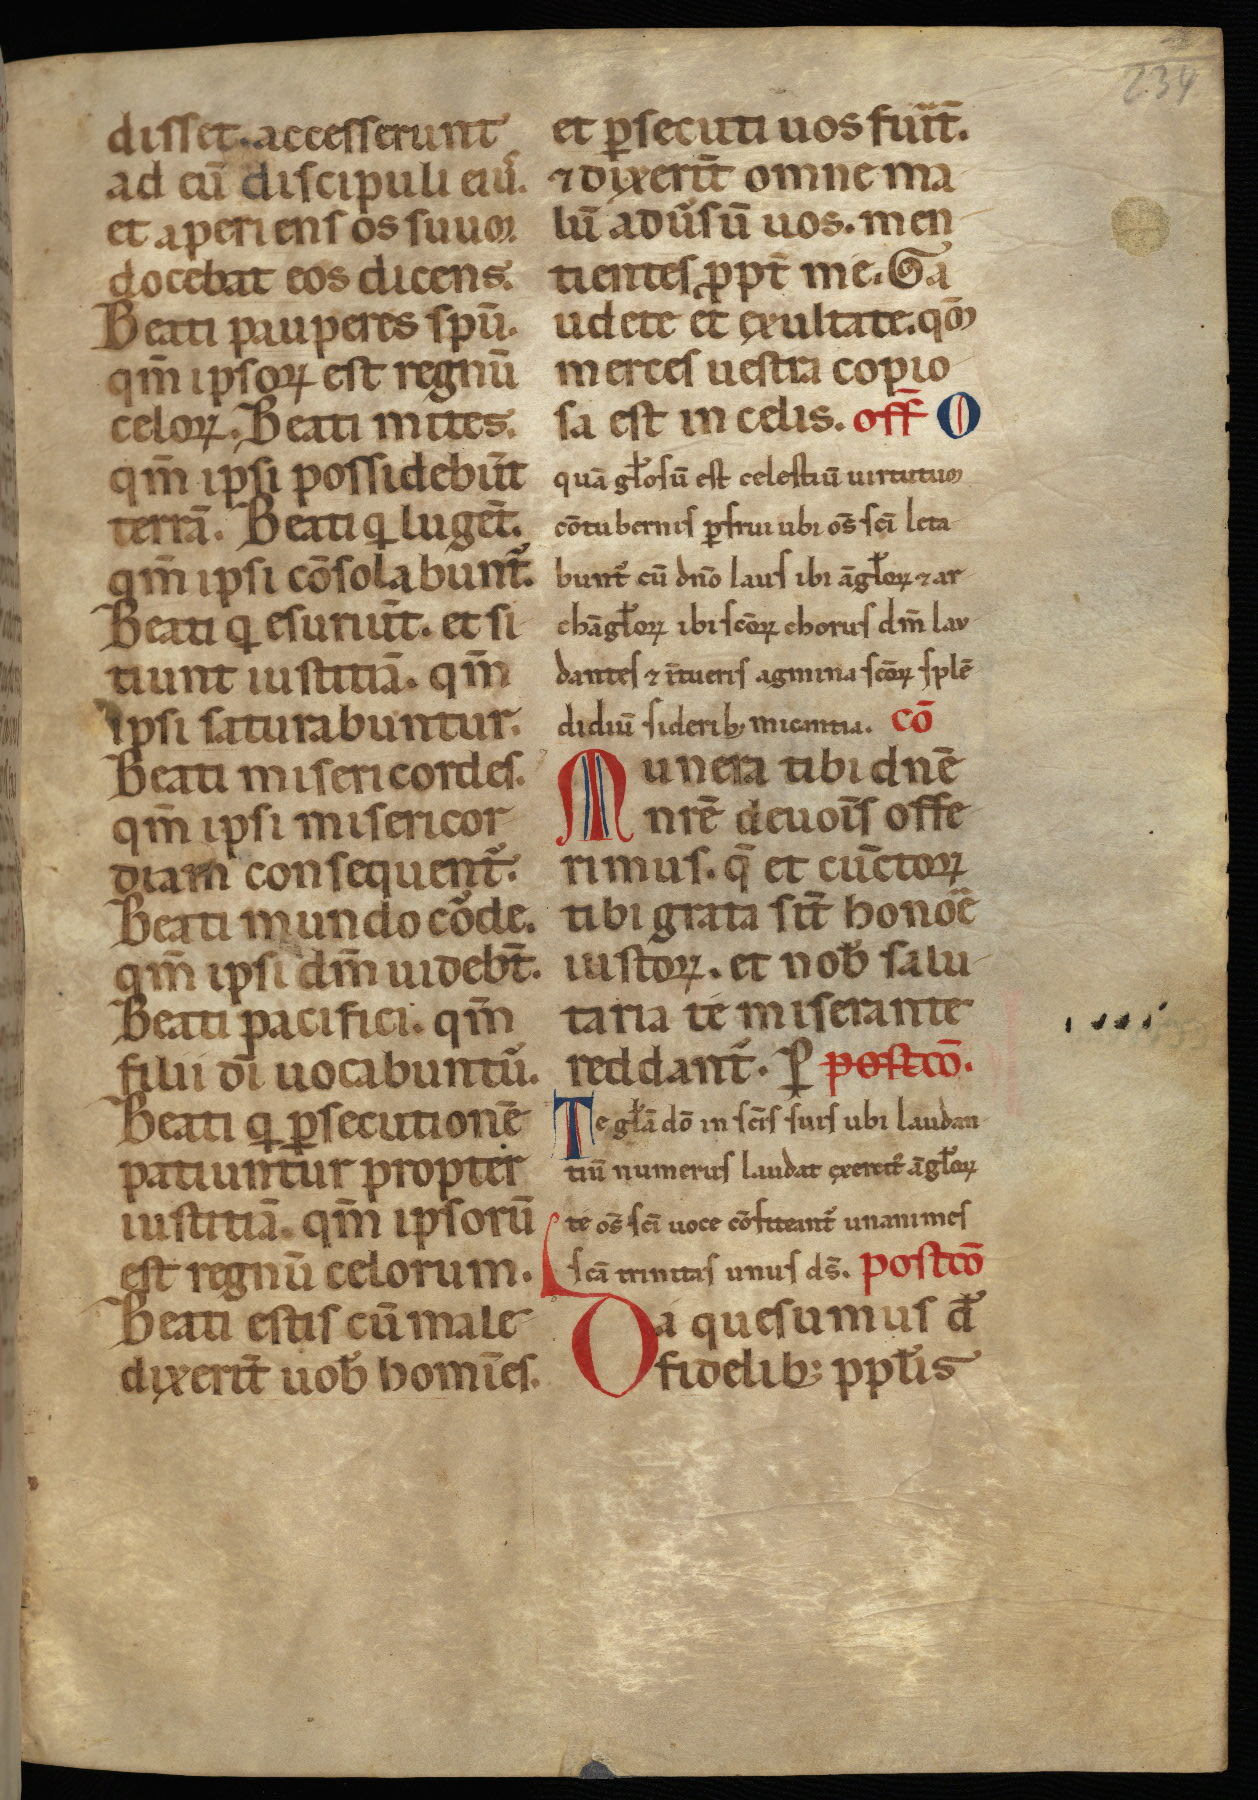 234
disset. accesserunt
ad eū discipuli eiꝰ.
et aperiens os suum.
docebat eos dicens.
Beati pauperes spū.
qm̄ ipsoꝝ est regnū
celoꝝ. Beati mites.
qm̄ ipsi possidebūt
terrā. Beati q̇ lugēt.
qm̄ ipsi cōsolabunt᷑.
Beati q̇ esuriūt. et si
tiunt iustitiā. qm̄
ipsi saturabuntur.
Beati misericordes.
qm̄ ipsi misericor
diam consequent᷑.
Beati mundo cōde.
qm̄ ipsi dm̄ uidebt̄.
Beati pacifici. qm̄
filii dī uocabuntu᷑.
Beati q̇ ꝑsecutionē
patiuntur propter
iustitiā. qm̄ ipsorū
est regnū celorum.
Beati estis cū male
dixerīt uob̄ homīes.
et ꝑsecuti uos fūīt.
⁊ dixerīt omne ma
lū adūsū uos. men
tientes ꝓpt̄ me. Ga
udete et exultate. qm̄
merces uestra copio
sa est in celis. off̄ O
quā gl̄osū est celestiū uirtutum
cōtuberniis ꝑfrui ubi om̄s sc̄i leta
bunt᷑ cū dn̄o laus ibi āgl̄oꝝ ⁊ ar
chāgl̄oꝝ ibi sc̄oꝝ chorus dm̄ lau
dantes ⁊ ītueris agmina sc̄oꝝ splē
didiū siderib; micantia. cō
Munera tibi dn̄e
nr̄e deuoīs offe
rimus. q̄ et cūctoꝝ
tibi grata sīt honōē
iustoꝝ. et nob̄ salu
taria te miserante
reddant᷑. P̄ postcō.
Te gl̄ā dō in sc̄is suis ubi laudan
tiū numerus laudat exercit᷑ āgl̄oꝝ
te om̄s sc̄i uoce cōfiteant᷑ unanimes
sc̄ā trinitas unus ds̄. postcō
Da quesumus d̄
fidelib; ppl̄is